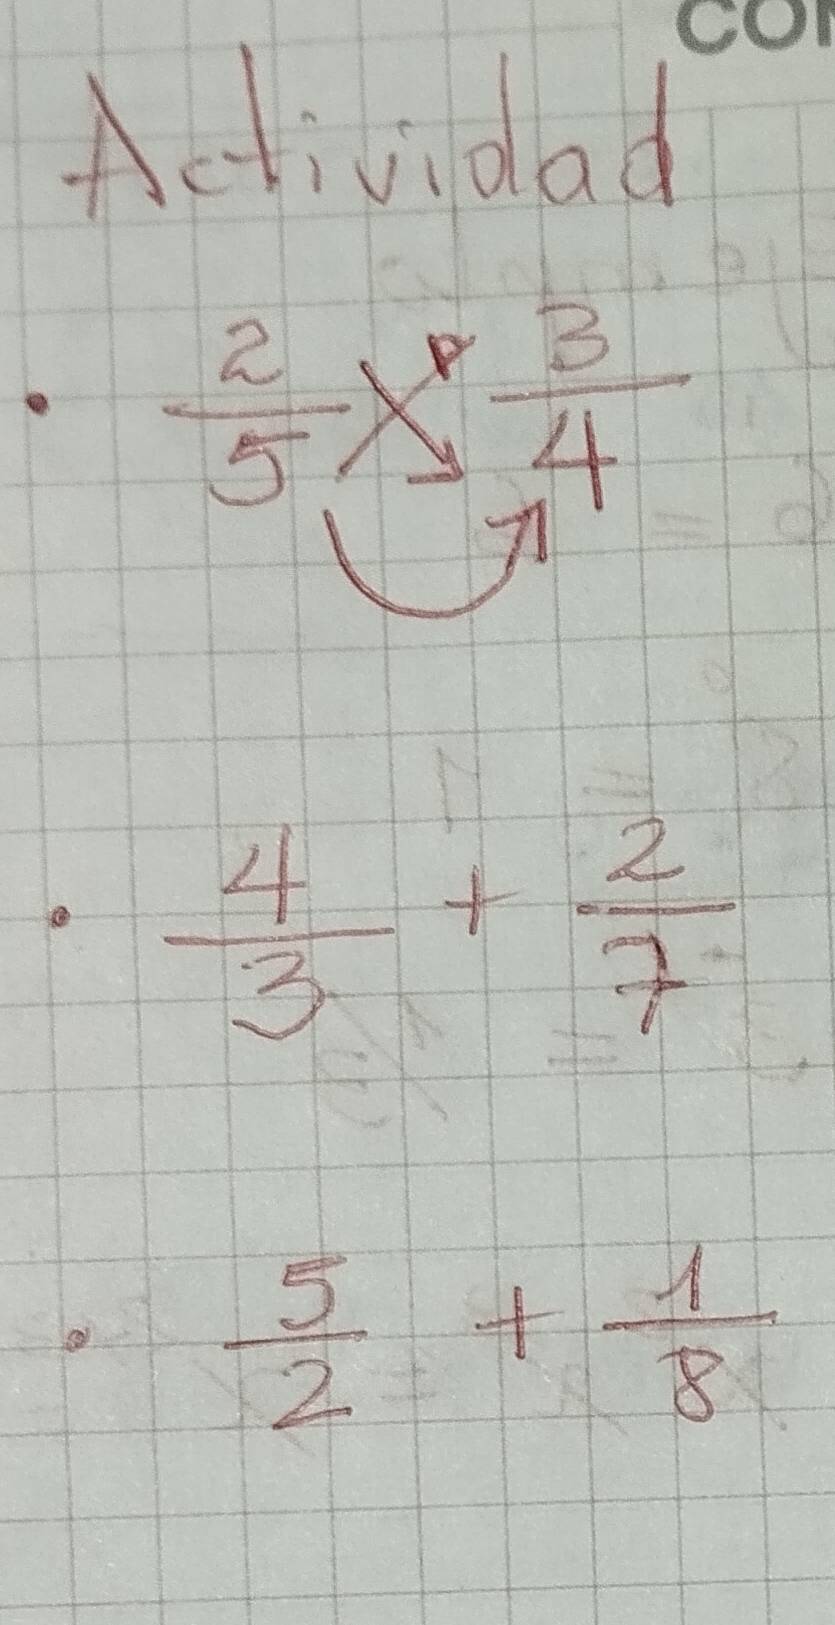 CO
Actividad
• 2/5 3/4
• 4/3 + 2/7
• 5/2 + 1/8